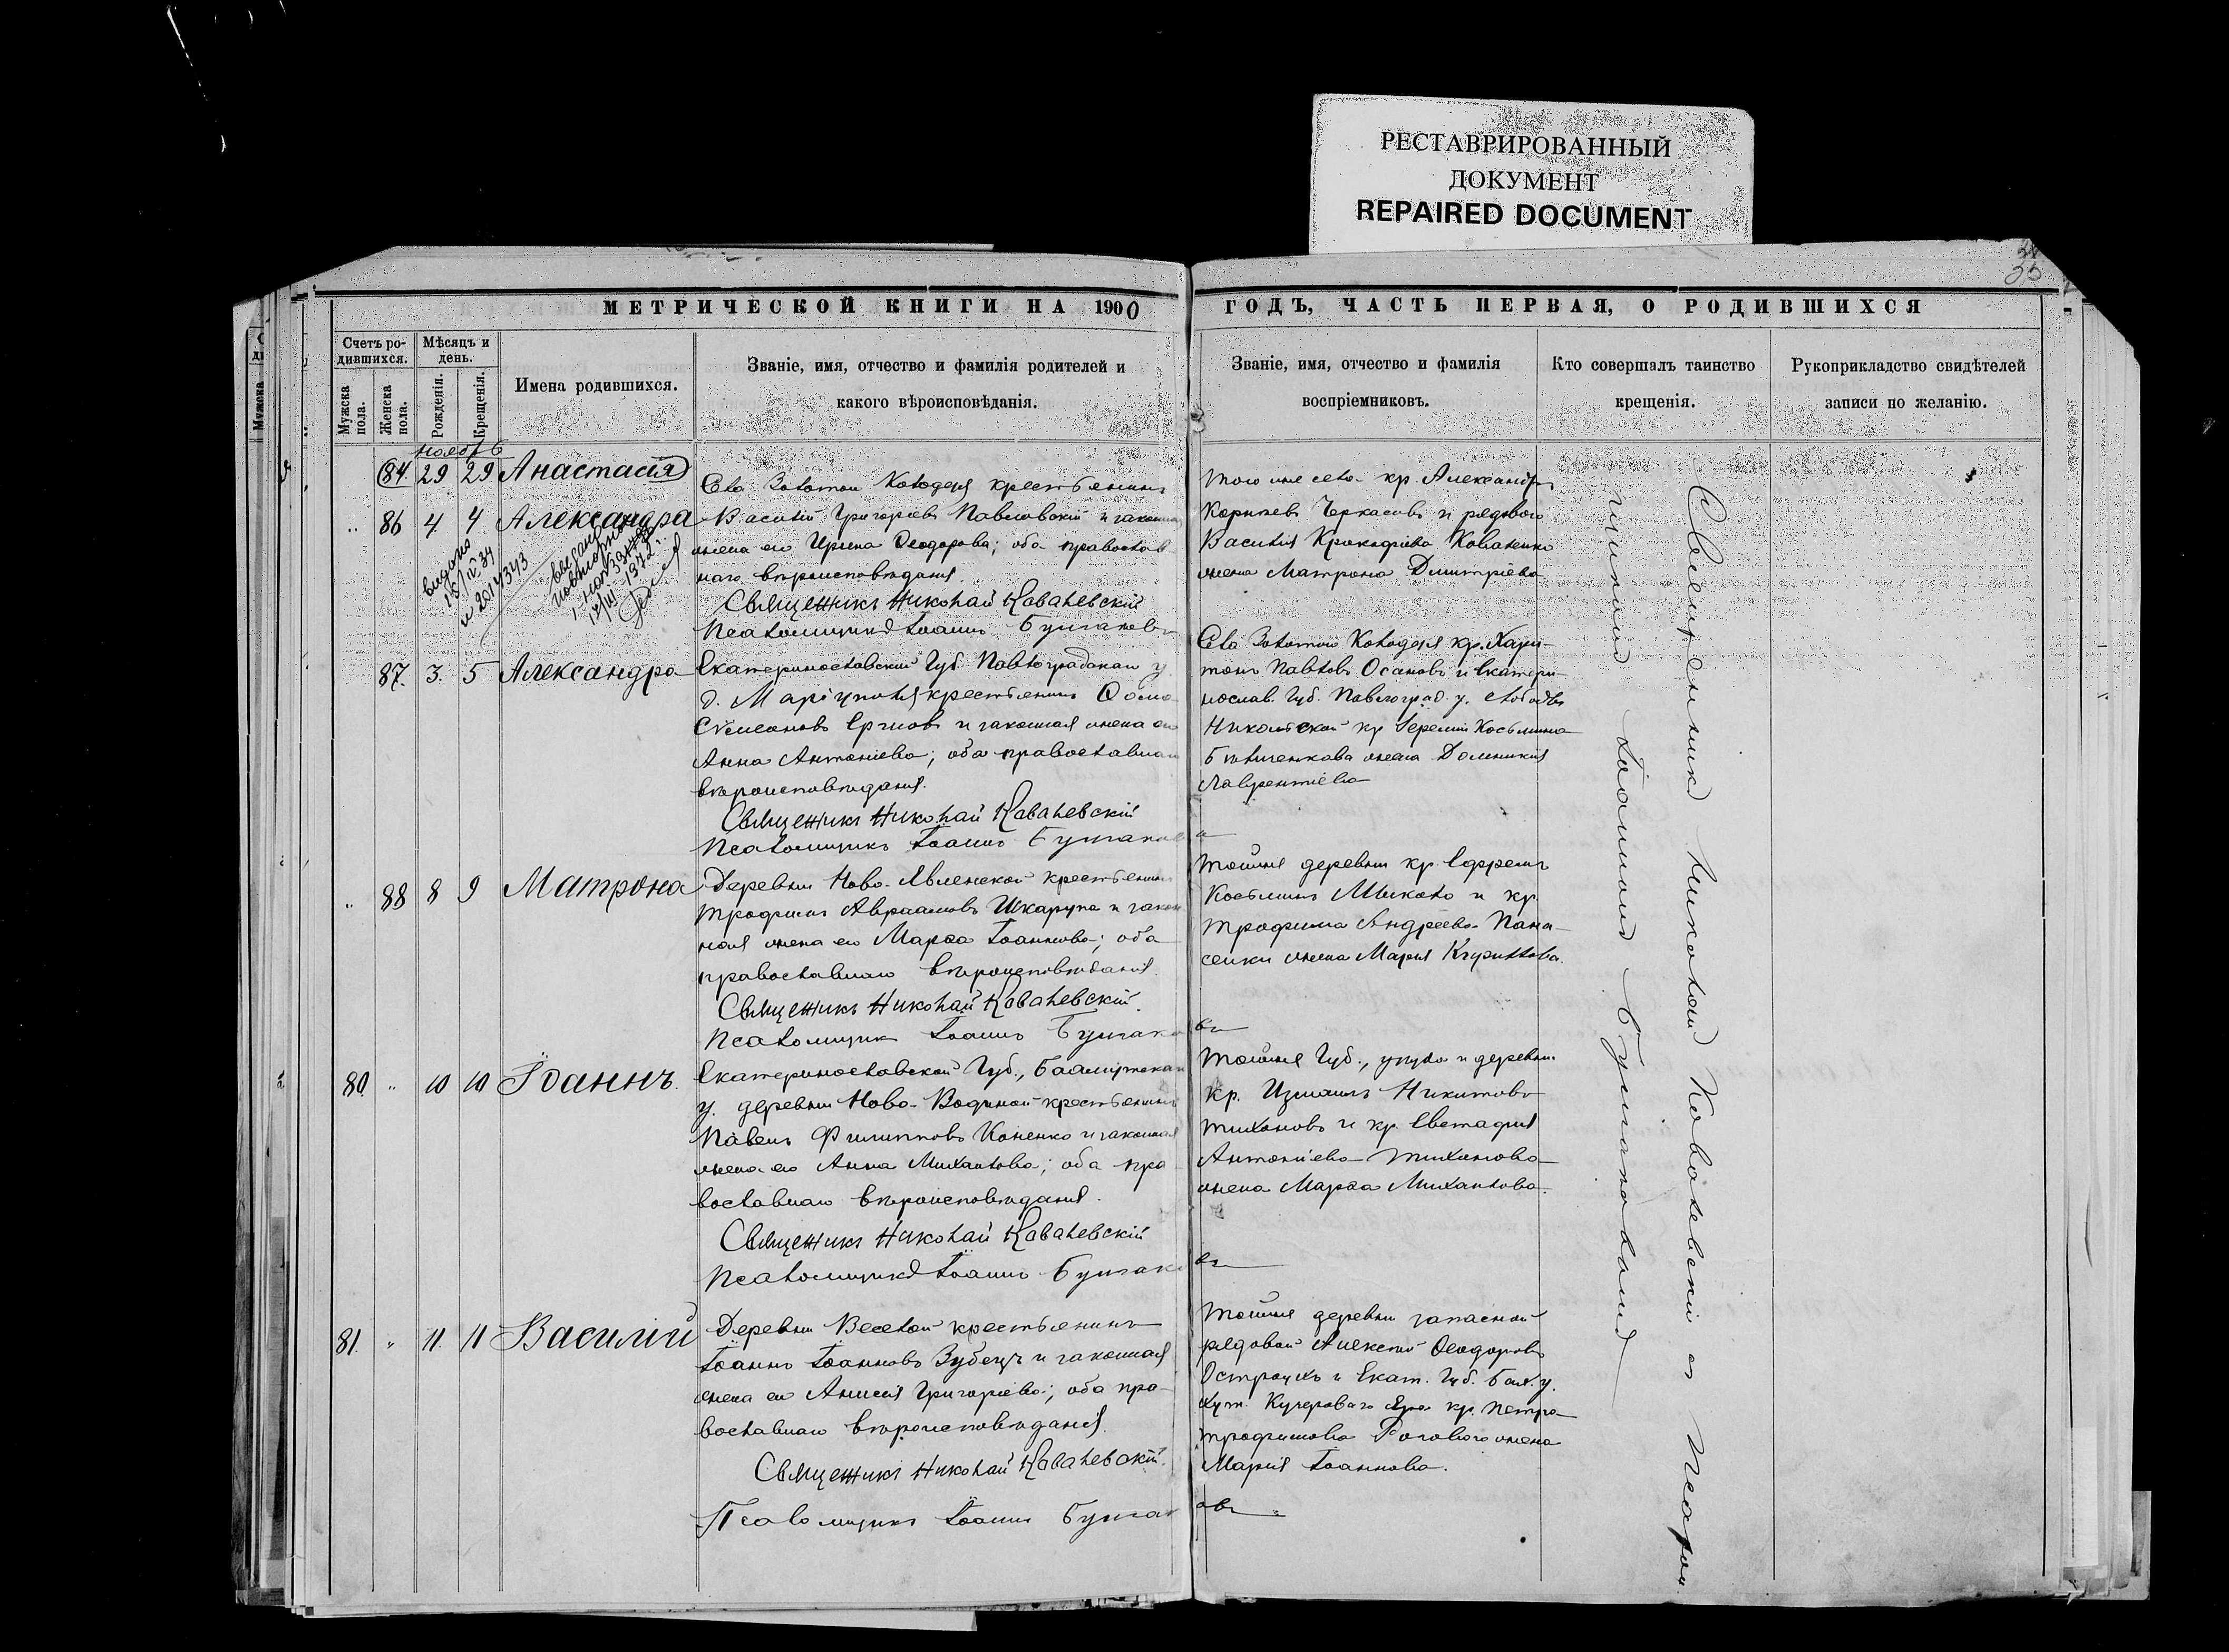 РЕСТАВРИРОВАННЫЙ
ДОКУМЕНТ
REPAIRED DOCUMENT
МЕТРИЧЕСКОЙ КНИГИ НА 1900
ГОДЪ, ЧАСТЬ ПЕРВАЯ, О РОДИВШИХСЯ
Счетъ ро-
дившихся.
Мѣсяцъ и
день.
Мужска
пола.
Женска
пола.
Рожденія.
Крещенія.
Имена родившихся.
Званіе, имя, отчество и фамилія родителей и
какого вѣроисповѣданія.
Званіе, имя, отчество и фамилія
воспріемниковъ.
Кто совершалъ таинство
крещенія.
Рукоприкладство свидѣтелей
записи по желанію.
84. 29 29 Анастасія
86 4 4 Александра
выдано
Села Золотой Колодезя крестьянинъ
Василій Григоріевъ Павловскій и законная
жена его Ирина Ѳеодорова; обa православ
наго вѣроисповѣданія.
Священникъ Николай Ковалевскій
Псаломщикъ Іоаннъ
Того же села кр. Александръ
Корніевъ Черкасовъ и рядового
Василія Коваленко
жена Матрона Димитріева
87. 3. 5 Александра
Екатеринославской Губ. Павлоградскаго у.
д. Маріуполя крестьянинъ Ѳома
Симеоновъ и законная жена его
Анна Антоніева; оба православнаго
вѣроисповѣданія.
Священникъ Николай Ковалевскій
Псаломщикъ Іоаннъ
Села Золотой Колодезя кр. Хари-
тонъ Павловъ Осановъ и Екатери-
нослав. Губ. Павлоград. у. слободы
Никольской кр. Косьмина
жена Домникія
Лаврентіева
88 8 9 Матрона
Деревни Ново-Явленской крестьянинъ
Трофимъ Авраамовъ Шкарупа и закон
ная жена его Марѳа Іоаннова; оба
православнаго вѣроисповѣданія.
Священникъ Николай Ковалевскій.
Псаломщикъ Іоаннъ
Той же деревни кр. Ефремъ
Косьминъ и кр.
Трофима Андреева Пана-
сенки жена Марія Кириллова.
80. " 10 10 Іоаннъ.
Екатеринославской Губ., Бахмутскаго
у. деревни Ново-Водяной крестьянинъ
Павелъ Филипповъ Коненко и законная
жена его Анна Михаилова; оба пра
вославнаго вѣроисповѣданія.
Священникъ Николай Ковалевскій
Псаломщикъ Іоаннъ
Той же Губ., уѣзда и деревни
кр. Измаилъ Никитовъ
Тихановъ и кр. Евстафія
Антоніева Тиханова
жена Марѳа Михаилова.
81. " 11. 11 Василій
Деревни Веселой крестьянинъ
Іоаннъ Іоанновъ Зубецъ и законная
жена его Анисія Григоріева; оба пра-
вославнаго вѣроисповѣданія.
Священникъ Николай Ковалевскій.
Псаломщикъ Іоаннъ
Той же деревни запасной
рядовой Алексей Ѳеодоровъ
и Екат. Губ. Бах. у.
хут. Кучероваго Яра кр. Петра
Трофимова Рогового жена
Марія Іоаннова.
Священникъ Николай Ковалевскій съ Псалом
щикомъ Іоанномъ